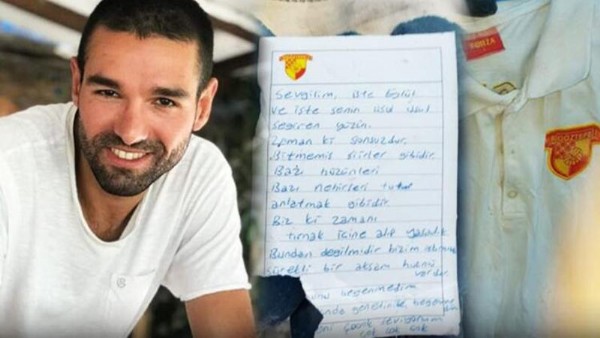 Sevgilim, işte Eylül
ve işte senin usul usul
seğiren yüzün.
Zaman ki sonsuzdur.
Bitmemiş şiirler gibidir.
Bazı hüzünleri
Bazı nehirleri
anlatmak gibidir.
Biz ki zamanı
tırnak içine alıp yaşadık
Bundan değilmidir bizim
Sürekli bir akşam hüznü
vardır
beğenmedim
seviyorum
çok çok çok